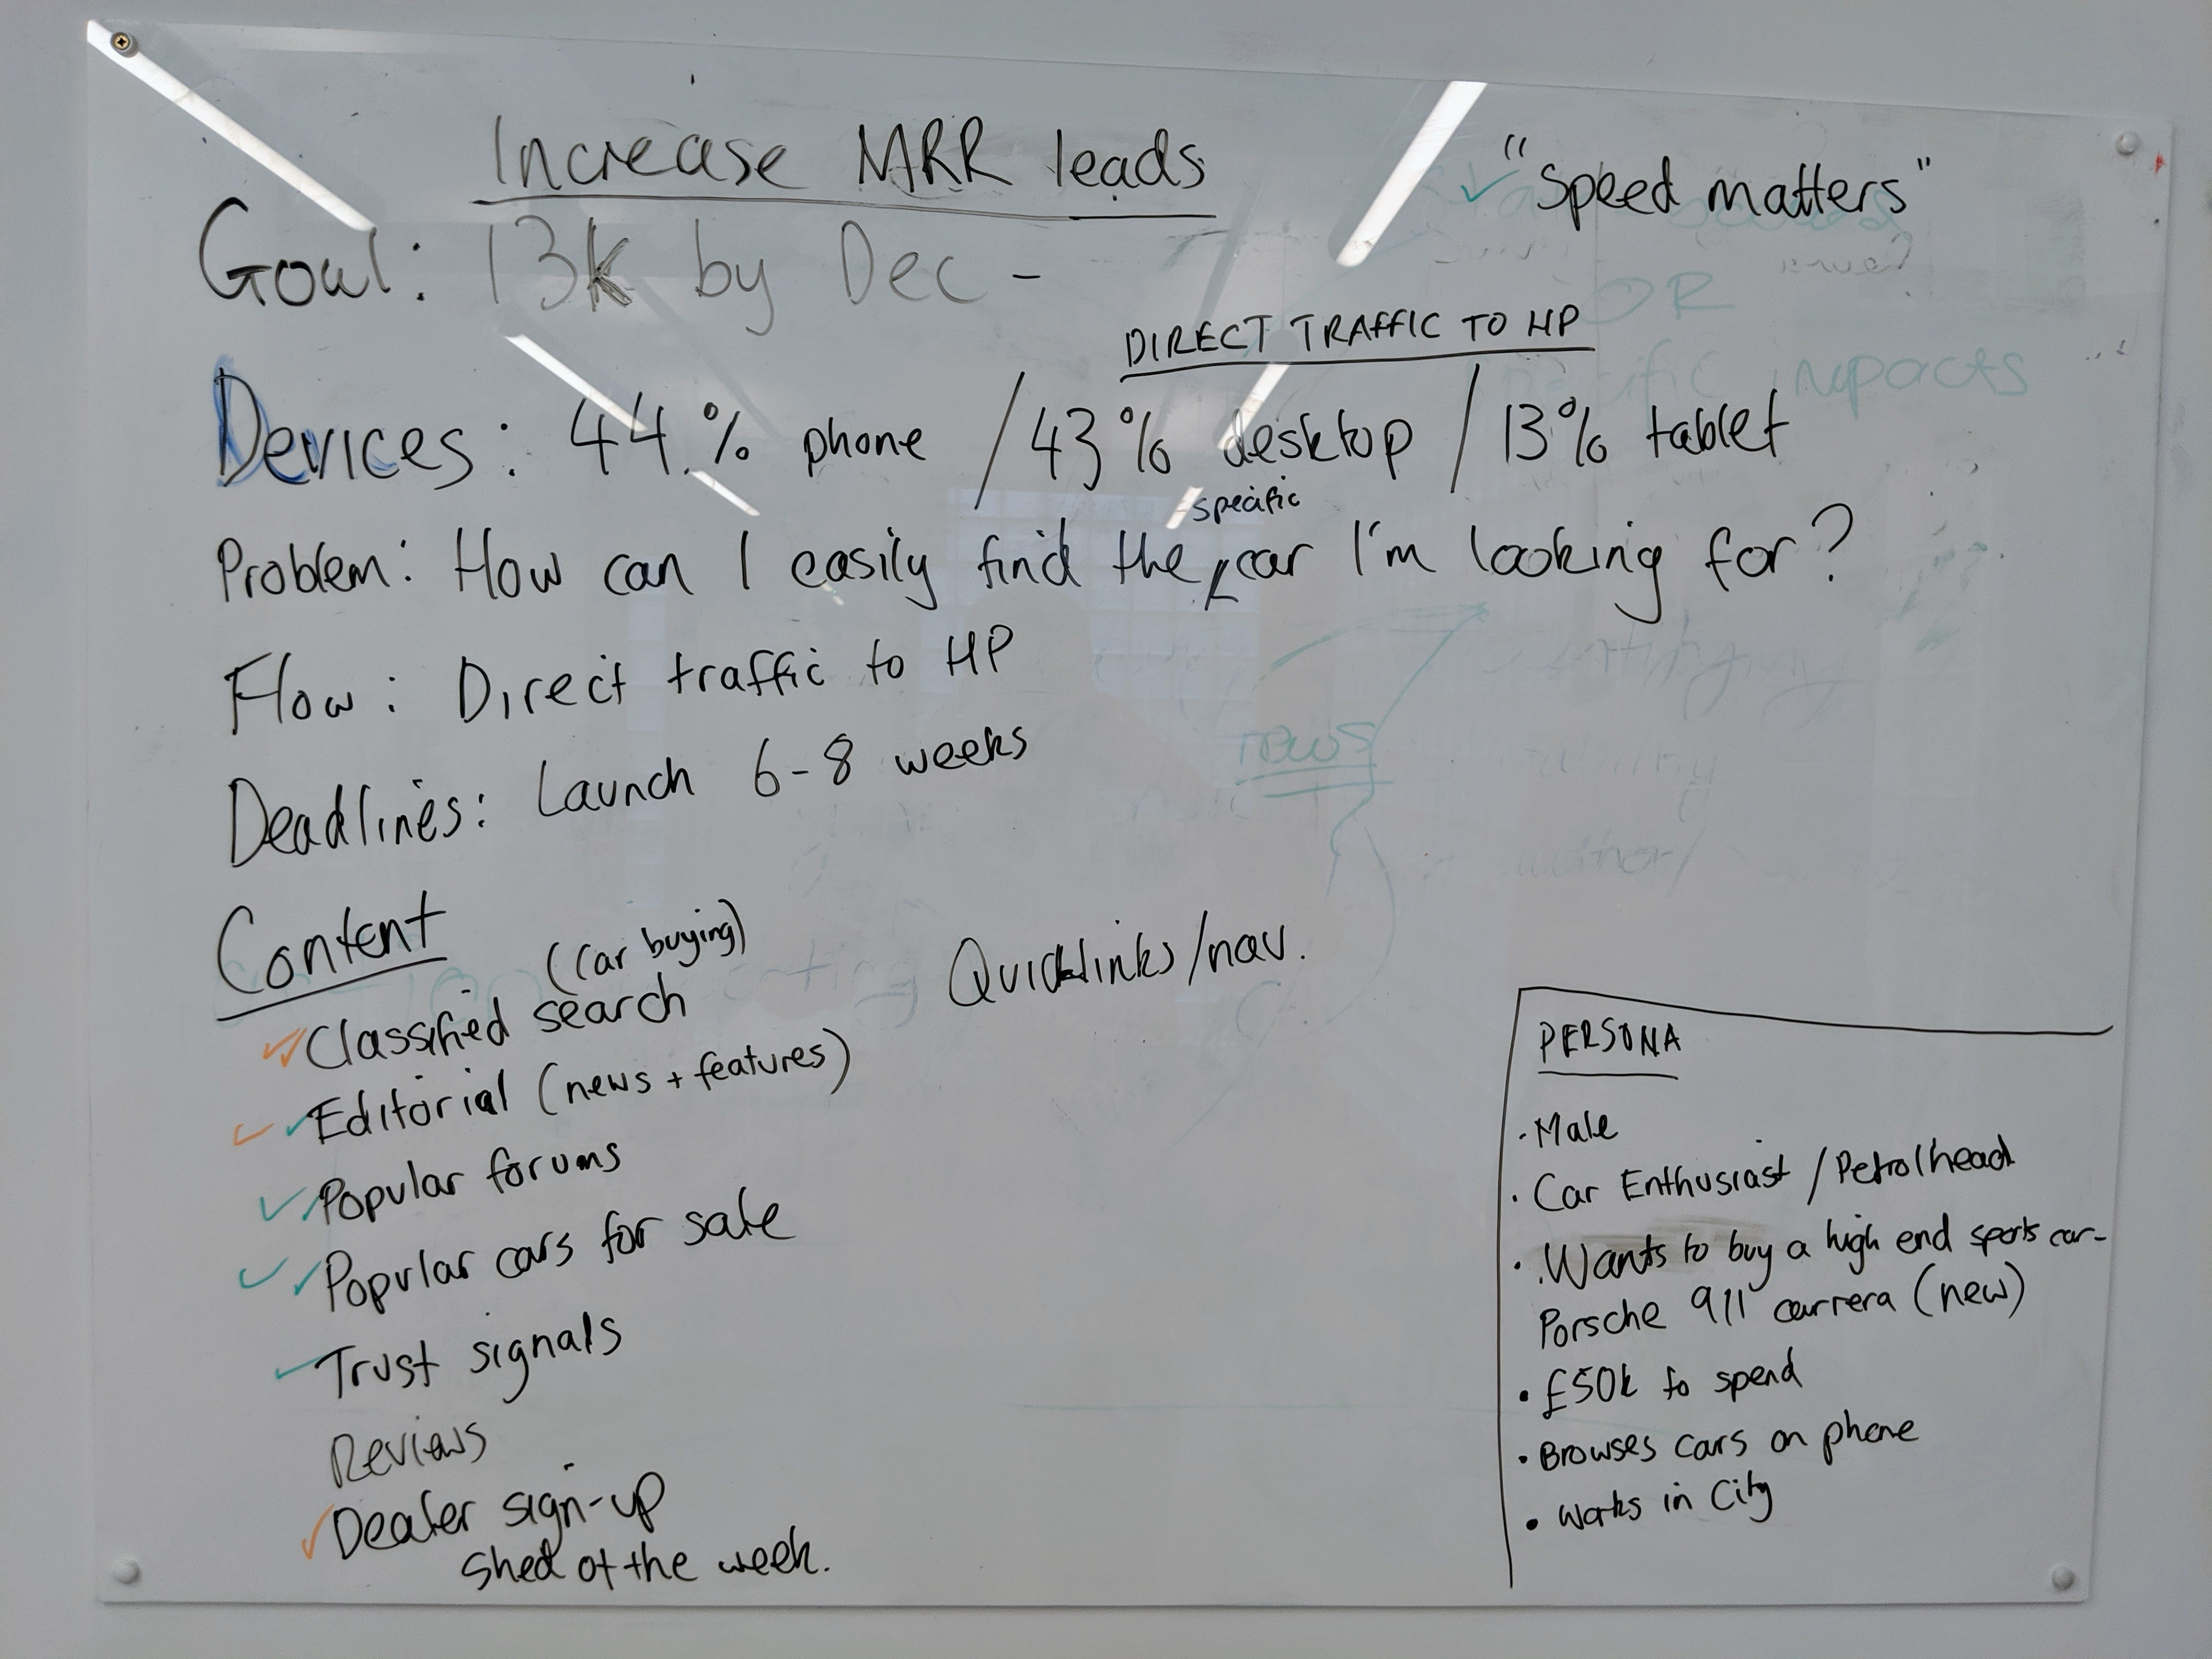 Increase MRR leads
"Speed matters"
Goal: 13k by Dec -
DIRECT TRAFFIC TO HP
Devices: 44% phone / 43% desktop / 13% tablet
specific
Problem: How can I easily find the car I'm looking for?
Flow: Direct traffic to HP
Deadlines: Launch 6-8 weeks
Content
(Car buying)
Classified search
Quicklinks/nav.
Editorial (news + features)
Popular forums
Popular cars for sale
Trust signals
Reviews
Dealer sign-up
Shed of the week.
PERSONA
• Male
• Car Enthusiast / Petrolhead
• Wants to buy a high end sports car -
Porsche 911 carrera (new)
• £50k to spend
• Browses cars on phone
• Works in City
OR
impacts
news